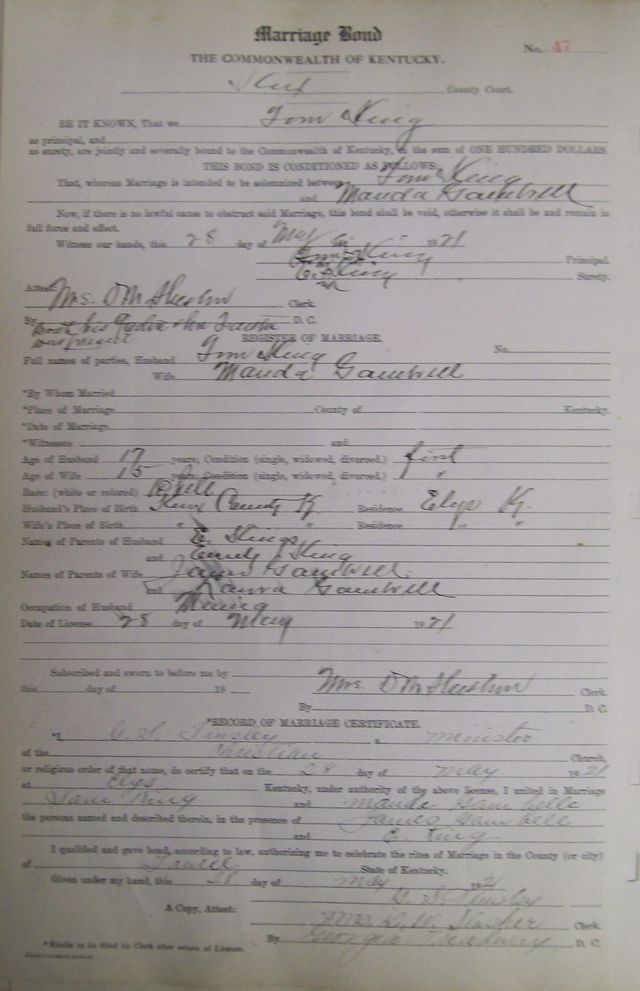 Marriage Bond
No. 47
THE COMMONWEALTH OF KENTUCKY.
Knox County Court.
BE IT KNOWN, That we Tom King
as principal, and
as surety, are jointly and severally bound to the Commonwealth of Kentucky, in the sum of ONE HUNDRED DOLLARS.
THIS BOND IS CONDITIONED AS FOLLOWS:
That, whereas Marriage is intended to be solemnized between Tom King
and Manda Gambrell
Now, if there is no lawful cause to obstruct said Marriage, this bond shall be void, otherwise it shall be and remain in
full force and effect.
Witness our hands, this 28 day of May 1921
Tom King Principal.
E. King Surety.
Attest:
Mrs. D M Clerk.
By D. C.
was present
REGISTER OF MARRIAGE.
No.
Full names of parties, Husband Tom King
Wife Manda Gambrell
*By Whom Married
*Place of Marriage County of Kentucky.
*Date of Marriage
*Witnesses and
Age of Husband 17 years; Condition (single, widowed, divorced.) first
Age of Wife 15 years; Condition (single, widowed, divorced.) "
Race: (white or colored)
Husband's Place of Birth Knox County Ky Residence Elys Ky.
Wife's Place of Birth " " Residence " "
Names of Parents of Husband E. King
and Emily King
Names of Parents of Wife James Gambrell
and Laura Gambrell
Occupation of Husband Mining
Date of License 28 day of May 1921
Subscribed and sworn to before me by Mrs. D M Clerk.
this day of 19
By D. C.
*RECORD OF MARRIAGE CERTIFICATE.
*I, G. S. Tinsley a minister
of the Christian Church,
or religious order of that name, do certify that on the 28 day of May 1921
at Elys Kentucky, under authority of the above license, I united in Marriage
King and Gambrell
the persons named and described therein, in the presence of James Gambrell
and E. King
I qualified and gave bond, according to law, authorizing me to celebrate the rites of Marriage in the County (or city)
of Laurel State of Kentucky.
Given under my hand, this 28 day of May 1921
G. S. Tinsley
A Copy, Attest: Mrs. Clerk.
By Georgia D. C.
*Blanks to be filled by Clerk after return of License.